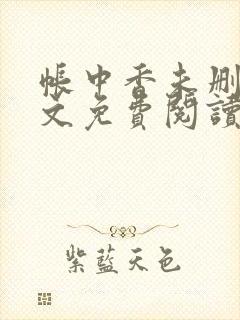 帳中香未删
文免費閱讀
紫藍天色